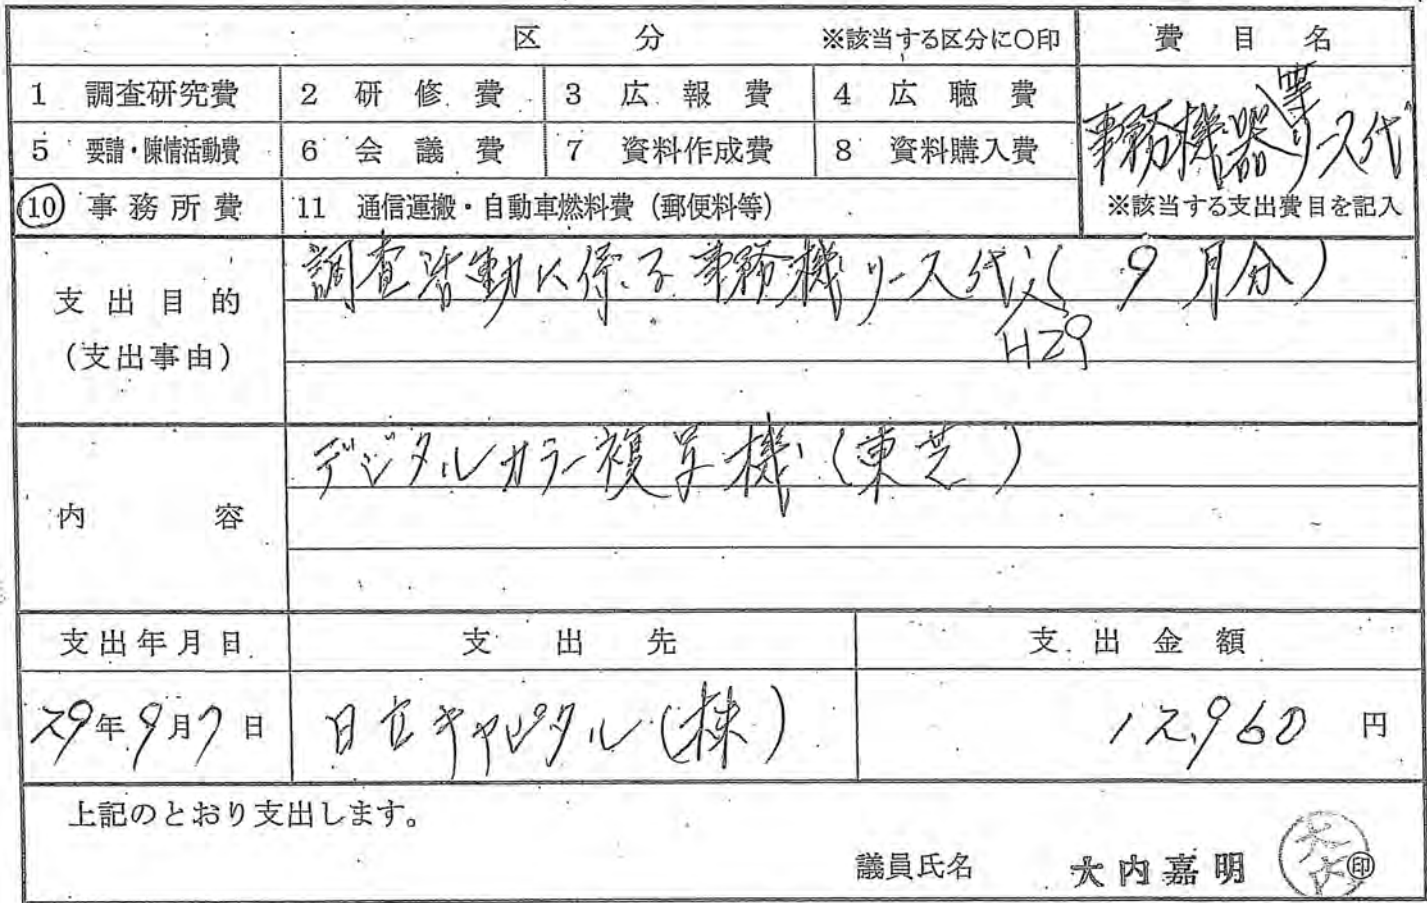 区 分 ※該当する区分に○印 費目名
1 調査研究費 2 研修費 3 広報費 4 広聴費
事務機器等リース代
5 要請・陳情活動費 6 会議費 7 資料作成費 8 資料購入費
10 事務所費 11 通信運搬・自動車燃料費(郵便料等) ※該当する支出費目を記入
支出目的
(支出事由)
調査活動に係る事務機リース代(H29 9月分)
内容
デジタルカラー複写機(東芝)
支出年月日 支出先 支出金額
29年9月7日 日立キャピタル(株) 12,960円
上記のとおり支出します。
議員氏名 大内嘉明 大内 ㊞